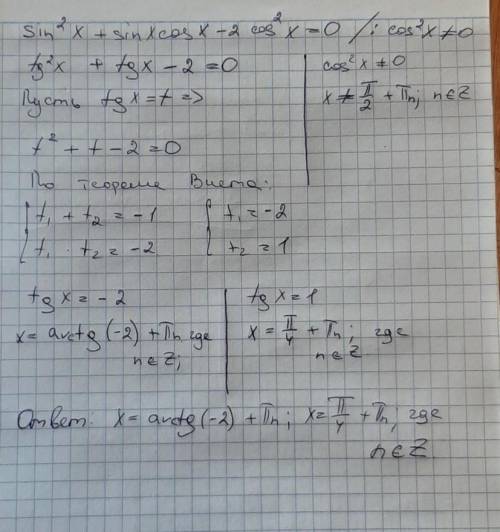 sin²x + sinxcosx - 2 cos²x = 0 /: cos²x ≠ 0
tg²x + tgx - 2 = 0
cos²x ≠ 0
Пусть tgx = t =>
x ≠ π/2 + πn; n∈Z
t² + t - 2 = 0
По теореме Виета:
{ t₁ + t₂ = -1 { t₁ = -2
t₁ · t₂ = -2 t₂ = 1
tg x = -2
x = arctg(-2) + πn, где
n∈Z;
tg x = 1
x = π/4 + πn; где
n∈Z
Ответ: x = arctg(-2) + πn; x = π/4 + πn; где
n∈Z